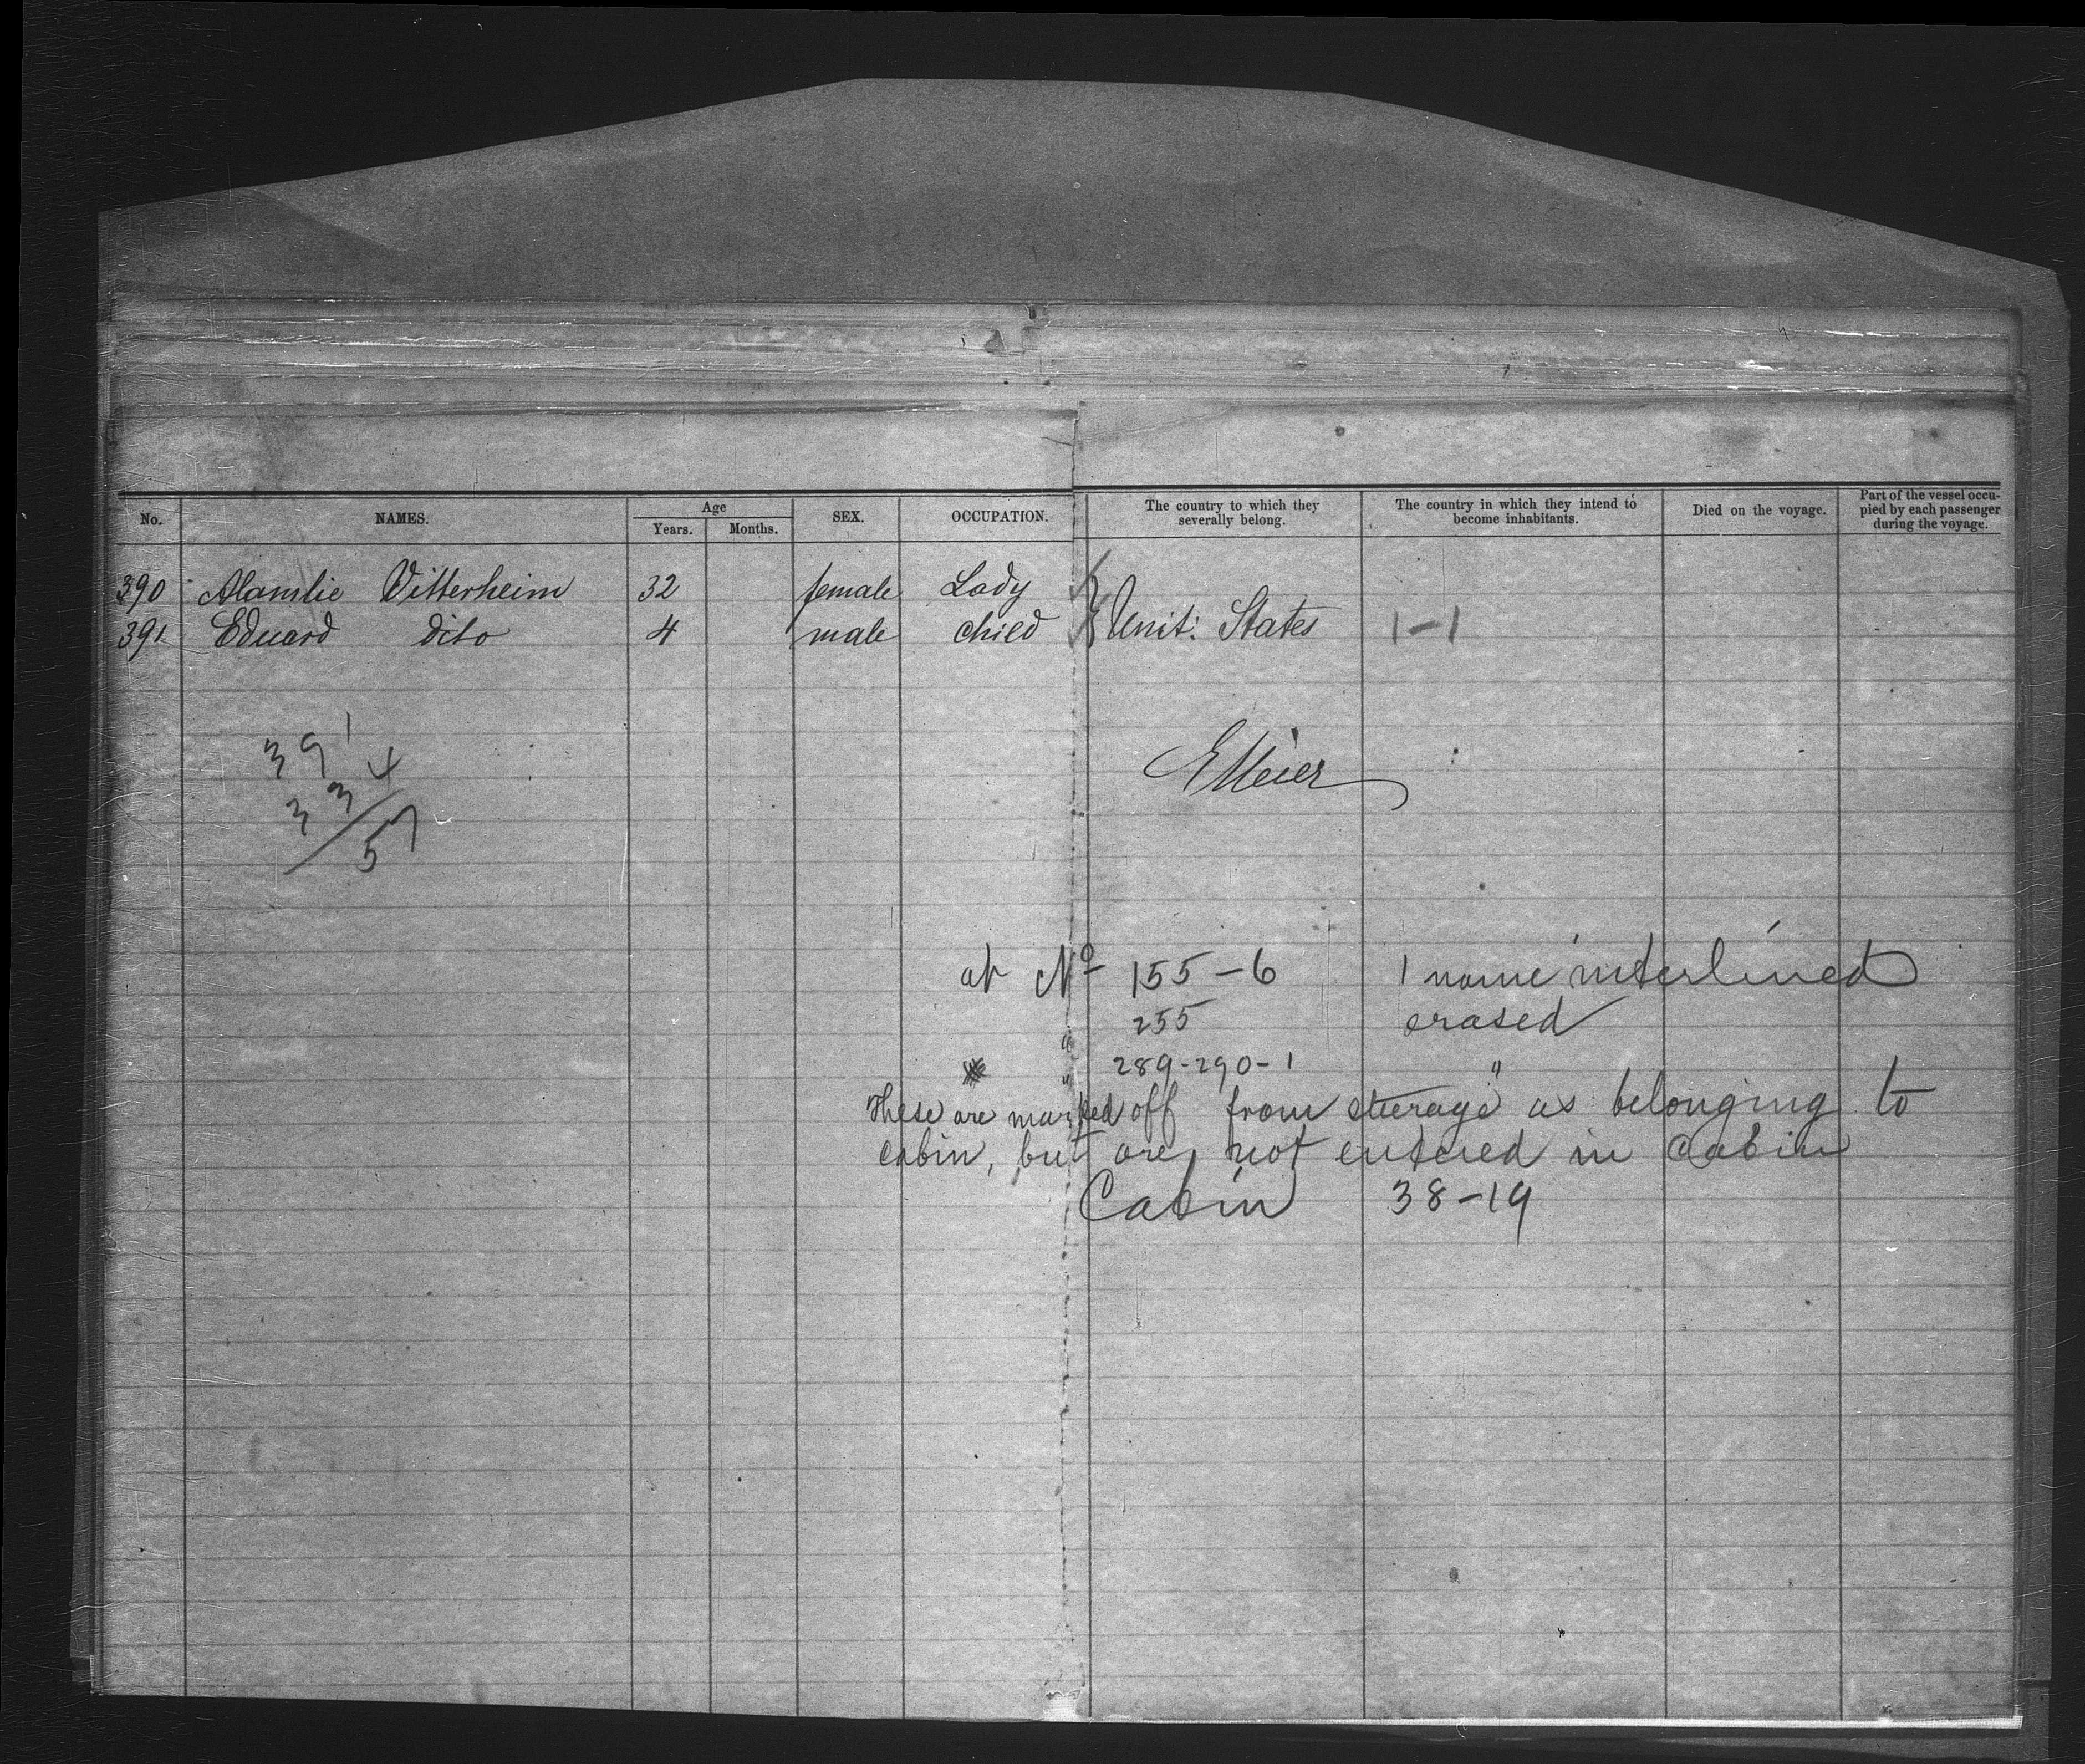 No. NAMES. Age Years. Months. SEX. OCCUPATION. The country to which they severally belong. The country in which they intend to become inhabitants. Died on the voyage. Part of the vessel occupied by each passenger during the voyage.
390 Alamlie Vitterheim 32 female Lady
391 Eduard dito 4 male child } Unit: States 1-1
391
334
57
E Meier
at No 155-6 1 name interlined
255 erased
" 289-290-1 "
These are marked off from steerage as belonging to
cabin, but are not entered in cabin
Cabin 38-19